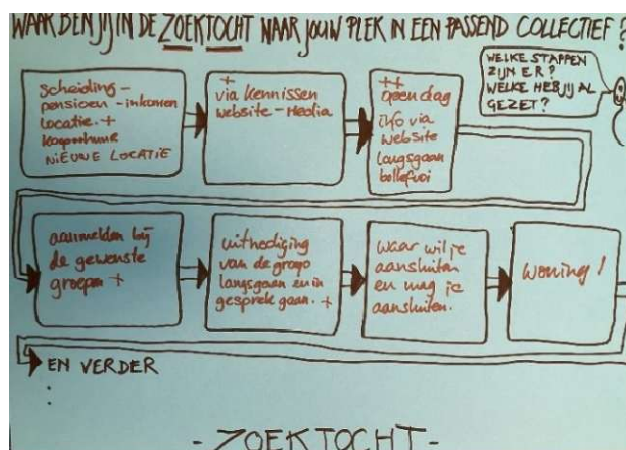 WAAR BEN JIJ IN DE ZOEKTOCHT NAAR JOUW PLEK IN EEN PASSEND COLLECTIEF?
WELKE STAPPEN
ZIJN ER?
WELKE HEB JIJ AL
GEZET?
scheiding -
pensioen - inkomen
locatie. +
NIEUWE LOCATIE
+
via kennissen
website - Media
++
open dag
info via
website
langsgaan
aanmelden bij
de gewenste
groepen +
uitnodiging
van de groep
langsgaan en in
gesprek gaan. +
waar wil je
aansluiten
en mag je
aansluiten.
Woning!
EN VERDER
:
- ZOEKTOCHT -